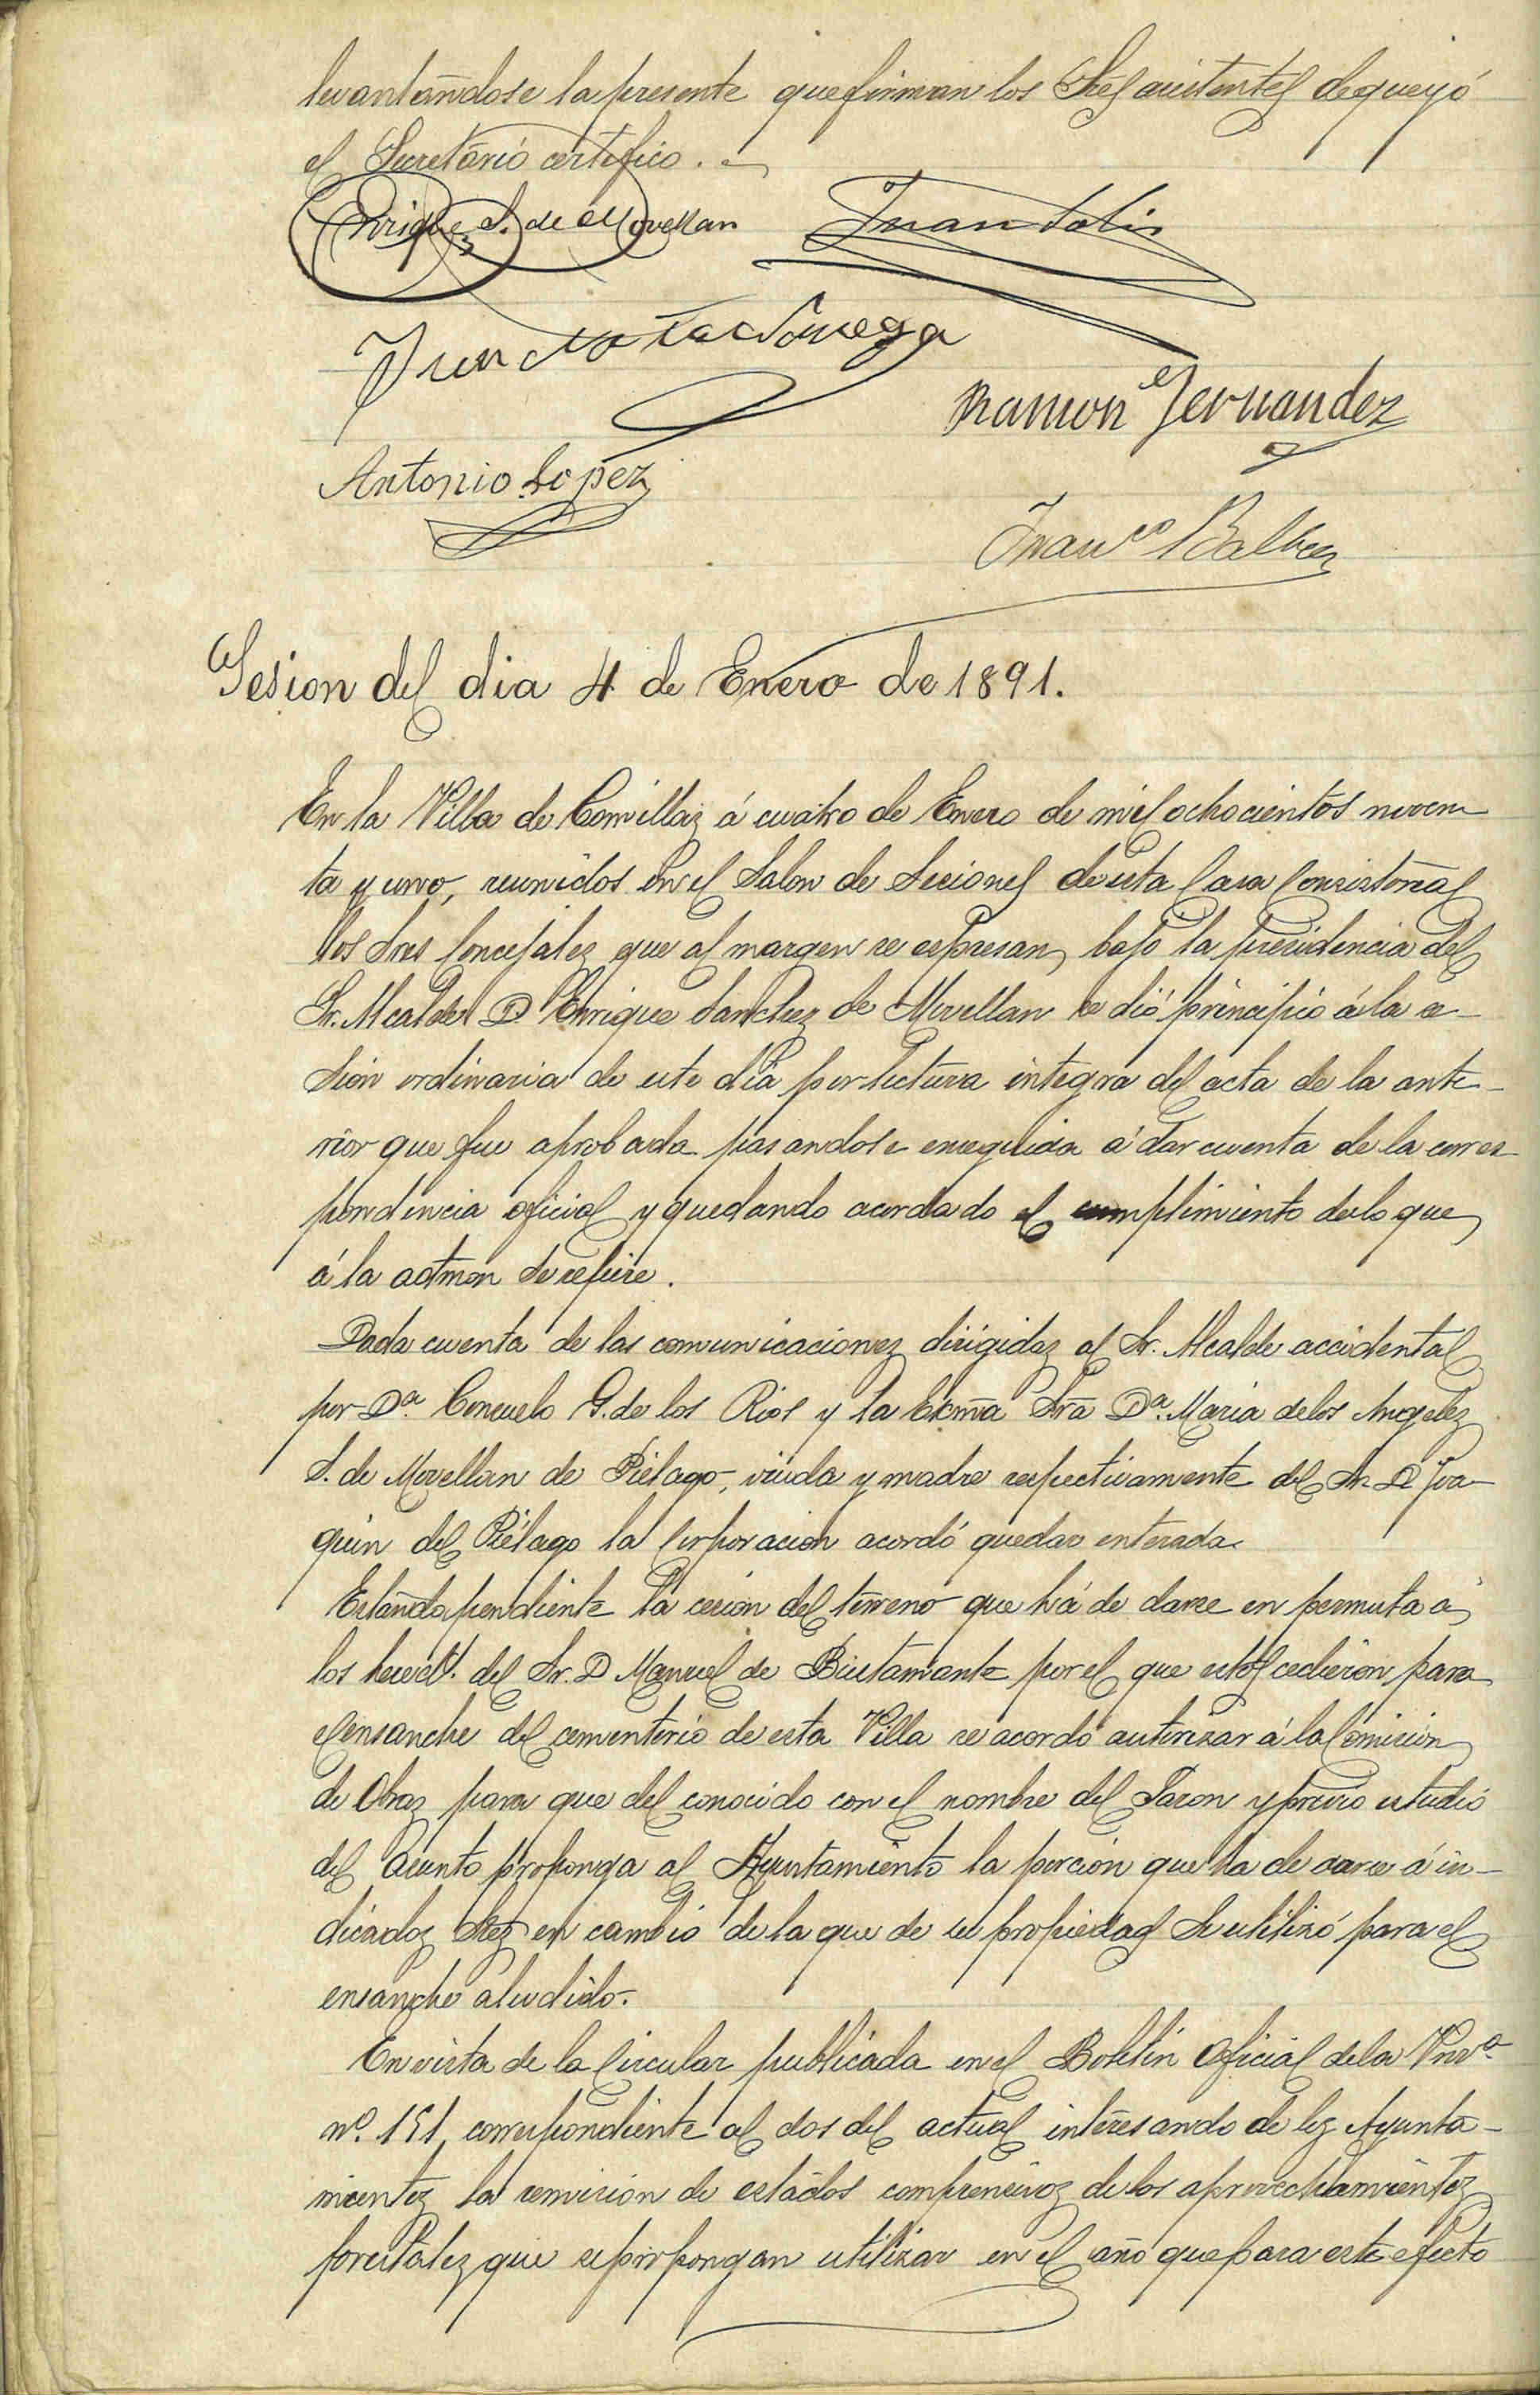 levantandose la presente que firman los Sres asistentes de que yó
el Secretario certifico.
Enrique S. de Movellan
Juan Solis
Juan Noriega
Ramon Fernandez
Antonio Lopez
Franco Balbas
Sesion del dia 4 de Enero de 1891.
En la Villa de Comillas á cuatro de Enero de mil ochocientos noven
ta y uno, reunidos en el Salon de Seciones de esta Casa Consistorial
los Sres Concejales que al margen se espresan, bajo la presidencia del
Sr. Alcalde D Enrique Sanchez de Movellan se dió principio á la se-
sion ordinaria de este dia por lectura integra del acta de la ante-
rior que fue aprobada pasandose enseguida á dar cuenta de la corres-
pondencia oficial y quedando acordado el cumplimiento de lo que
á la admon se refiere.
Dada cuenta de las comunicaciones dirigidas al Sr. Alcalde accidental
por Da. Consuelo G. de los Rios y la Excma Sra Da. Maria de los Angeles
S. de Movellan de Piélago, viuda y madre respectivamente del Sr. D Joa-
quin del Piélago la Corporacion acordó quedar enterada.
Estando pendiente la cesion del terreno que há de darse en permuta á
los hereds. del Sr. D Manuel de Bustamante por el que estos cedieron para
el ensanche del cementerio de esta Villa se acordó autorizar á la Comision
de Obras para que del conocido con el nombre del y previo estudio
del asunto proponga al Ayuntamiento la porcion que ha de darse á in-
dicados Sres en cambio de la que de su propiedad se utilizó para el
ensanche aludido.
En vista de la Circular publicada en el Boletin Oficial de la Prova.
nº. 151, correspondiente al dos del actual interesando de los Ayunta-
mientos la remision de estados comprensivos de los aprovechamientos
forestales que se propongan utilizar en el año que para este efecto